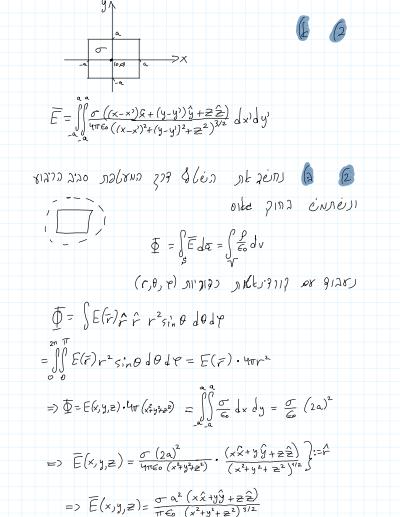 y
a
σ
-a (0,0) a x
-a
2) b
Ē = ∫_{-a}^{a}∫_{-a}^{a} σ((x-x')x̂ + (y-y')ŷ + zẑ) / 4πε₀((x-x')²+(y-y')²+z²)^{3/2} dx'dy'
2) נחשב את השטף דרך המעטפת סביב הריבוע
ונשתמש בחוק גאוס
Φ = ∫_S Ē da̅ = ∫_V ρ/ε₀ dv
נעבוד עם קורדינאטות כדוריות (r,θ,φ)
Φ = ∫ E(r̄) r̂ r̂ r² sinθ dθ dφ
= ∫_0^{2π}∫_0^{π} E(r̄) r² sinθ dθ dφ = E(r̄)·4πr²
=> Φ = E(x,y,z)·4π(x²+y²+z²) = ∫_{-a}^{a}∫_{-a}^{a} σ/ε₀ dx dy = σ/ε₀ (2a)²
=> Ē(x,y,z) = σ(2a)² / 4πε₀(x²+y²+z²) · (xx̂+yŷ+zẑ) / (x²+y²+z²)^{1/2} } := r̂
=> Ē(x,y,z) = σa²(xx̂+yŷ+zẑ) / πε₀(x²+y²+z²)^{3/2}